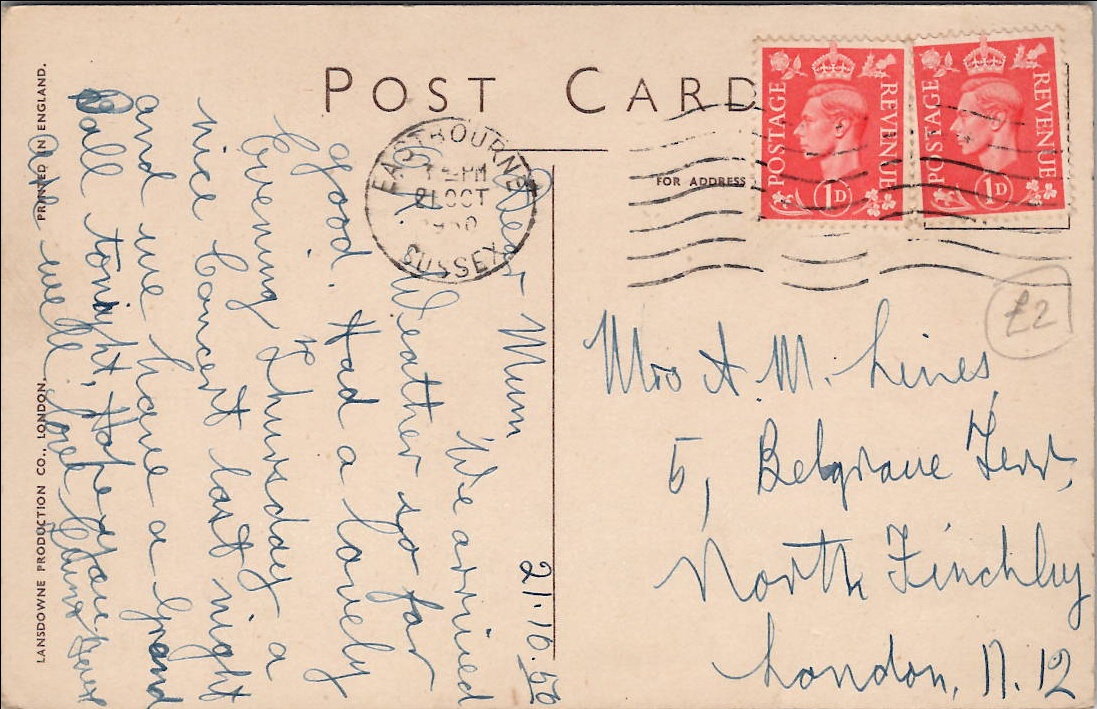 POST CARD
FOR ADDRESS
POSTAGE REVENUE
1D
POSTAGE REVENUE
1D
EASTBOURNE
PM
21 OCT
1950
SUSSEX
£2
21.10.50
Dear Mum
We arrived
Weather so far
good. Had a lovely
evening Thursday a
nice Concert last night
and we have a Grand
Ball tonight, Hope you
are well. Love
Mrs A. M. Lines,
5, Belgrave Terr,
North Finchley
London, N. 12
LANSDOWNE PRODUCTION CO., LONDON.
PRINTED IN ENGLAND.